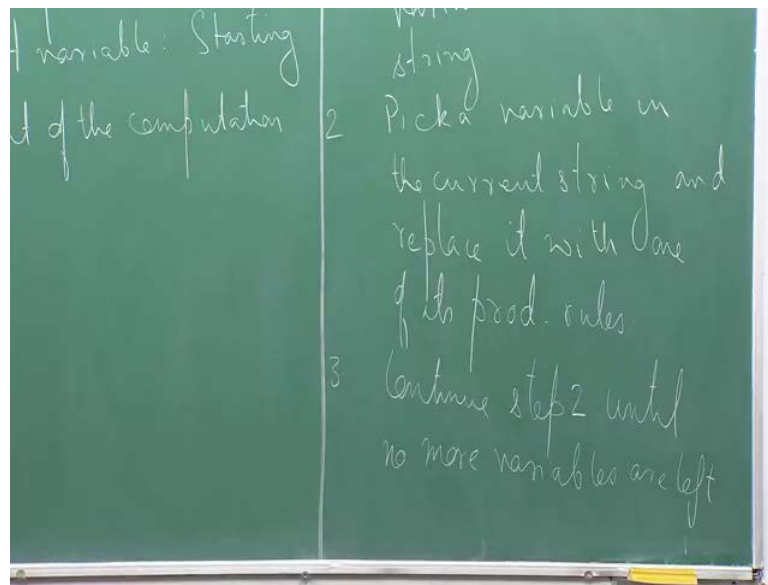 variable: Starting
of the computation
string
2 Pick a variable in
the current string and
replace it with one
of its prod. rules.
3 Continue step 2 until
no more variables are left